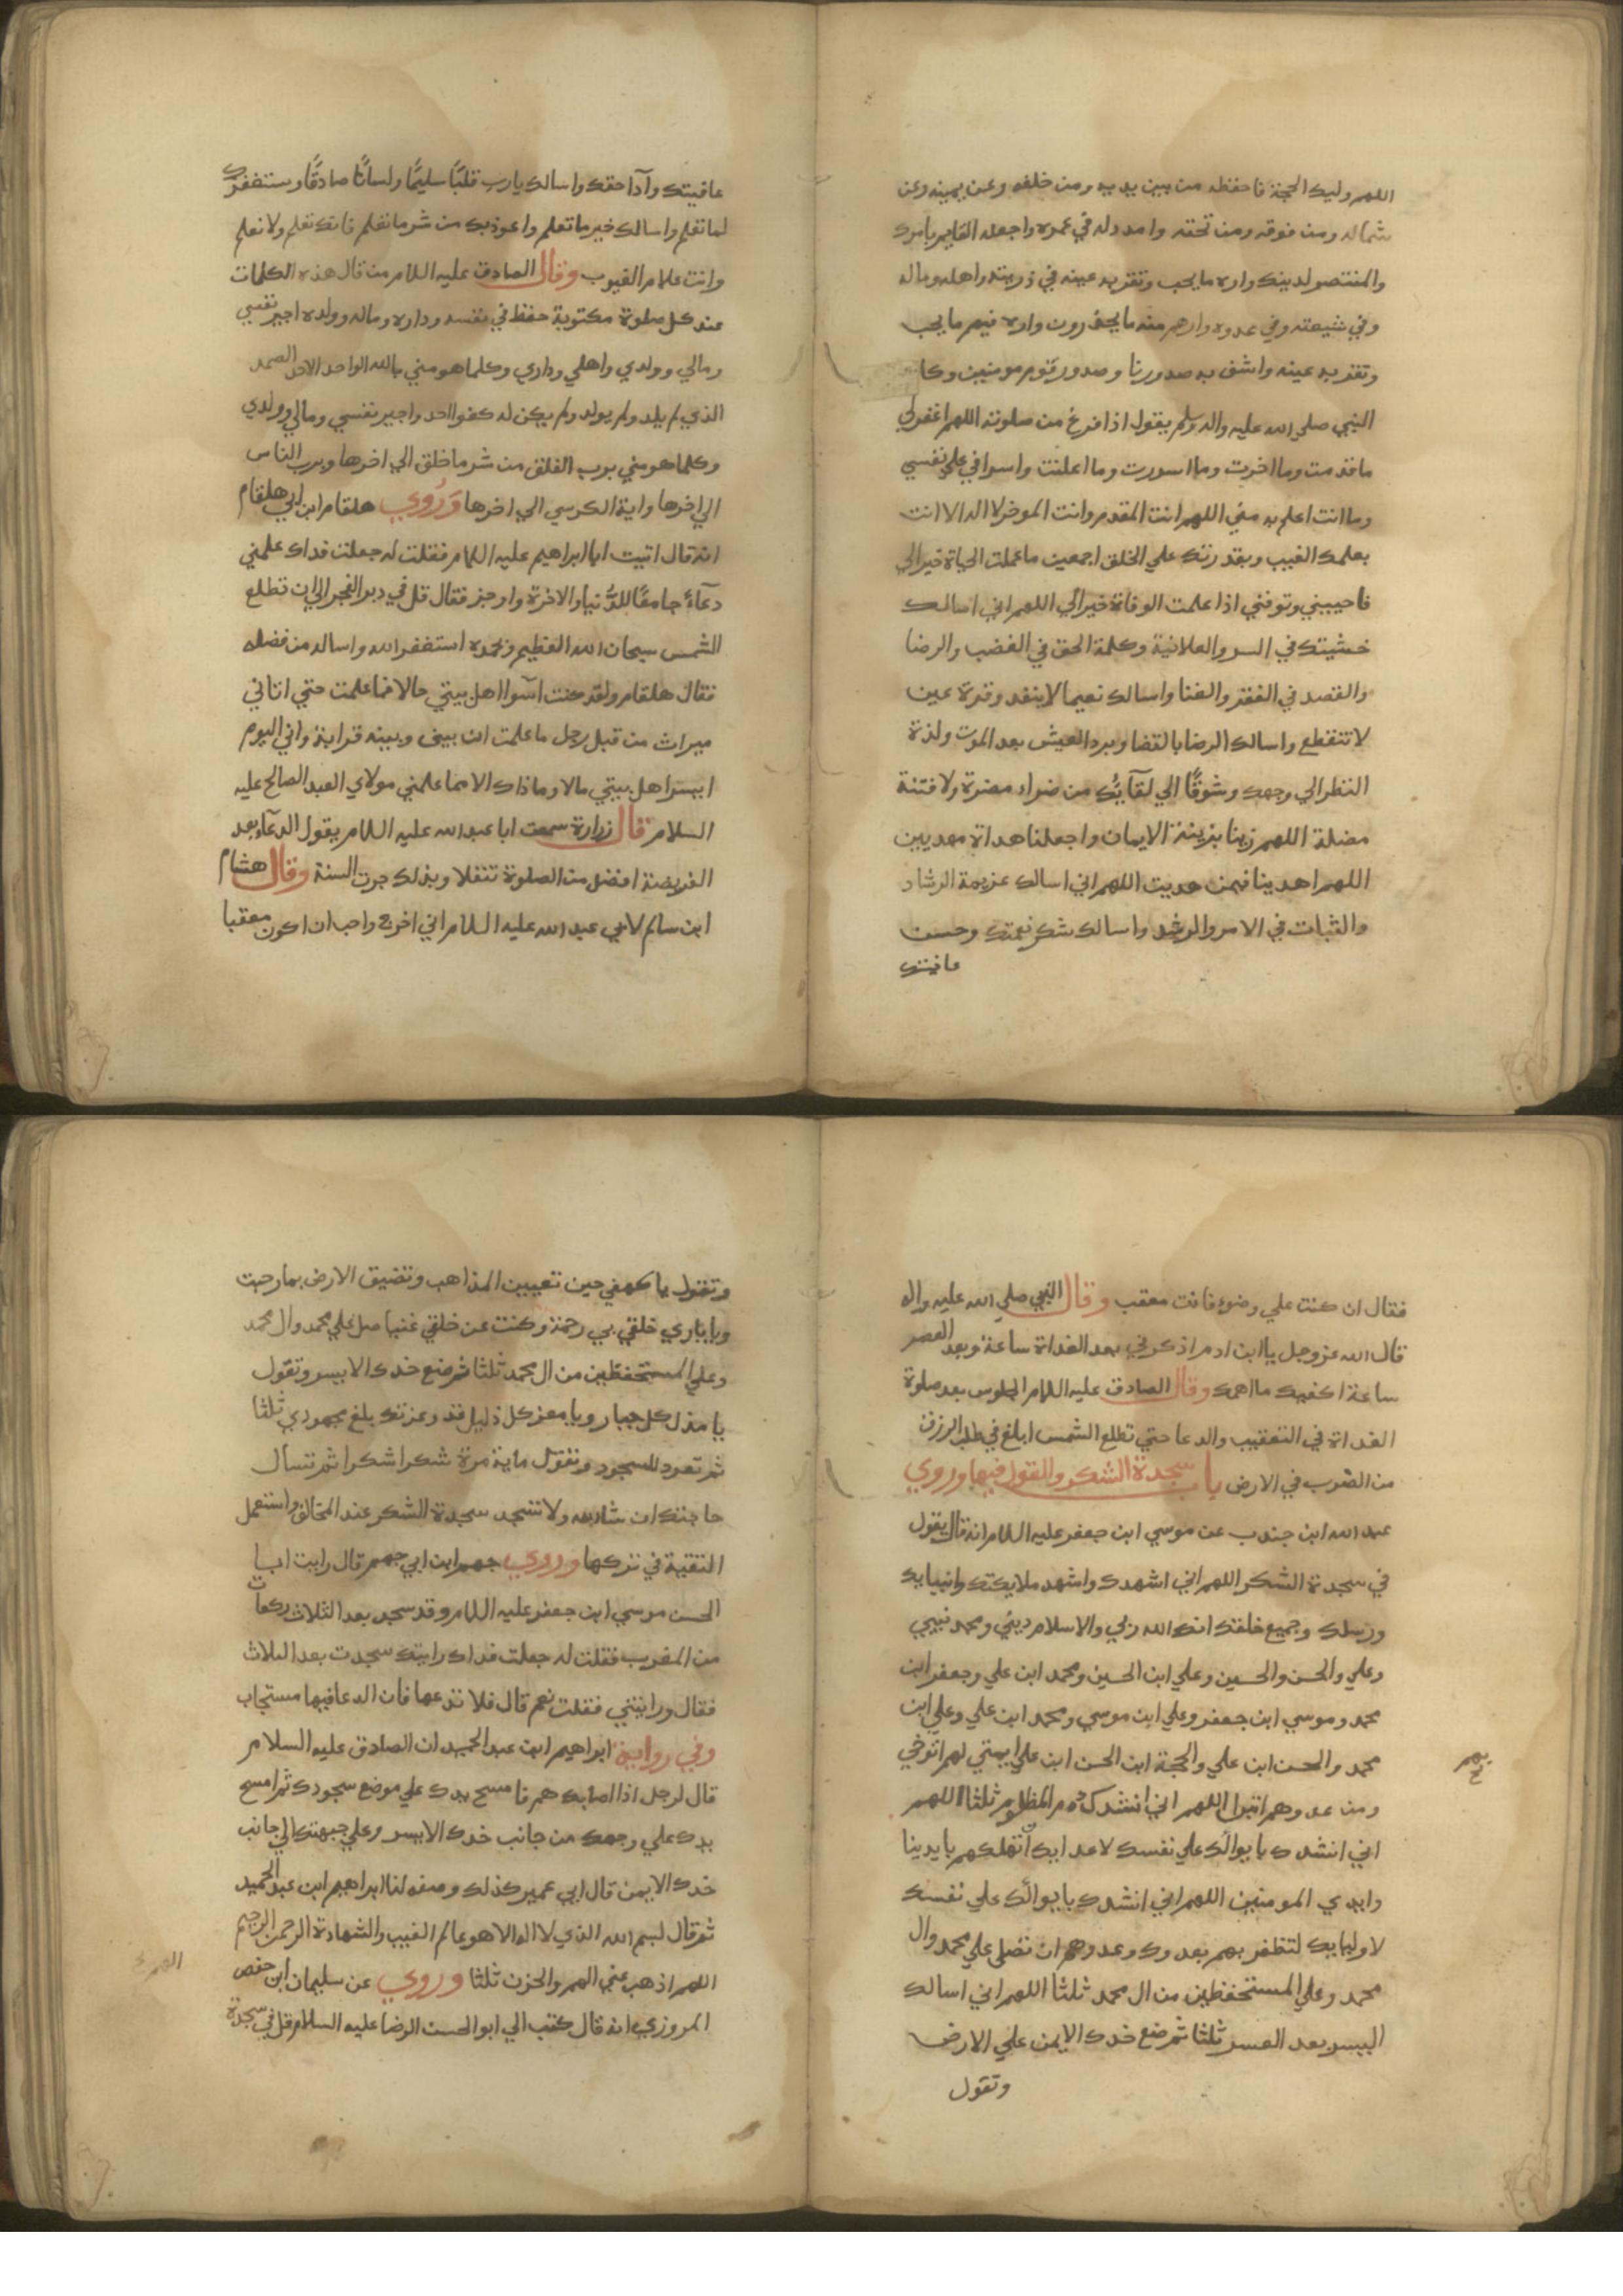 اللهم وليك الحجة فاحفظه من بين يديه ومن خلفه وعن يمينه وعن
شماله ومن فوقه ومن تحته وامدد له في عمره واجعله القايم بامرك
والمنتصر لدينك واره ما يحب وتقر به عينه في ذريته واهله وماله
وفي شيعته وفي عدوه وارهم منه ما يحذرون واره فيهم ما يحب
وتقر به عينه واشف به صدورنا وصدور قوم مومنين وكا
النبي صلي الله عليه واله وسلم يقول اذا فرغ من صلوته اللهم اغفر لي
ما قدمت وما اخرت وما اسررت وما اعلنت واسرافي علي نفسي
وما انت اعلم به مني اللهم انت المقدم وانت الموخر لا اله الا انت
بعلمك الغيب وبقدرتك علي الخلق اجمعين ما علمت الحياة خيرا لي
فاحييني وتوفني اذا علمت الوفاة خيرا لي اللهم اني اسالك
خشيتك في السر والعلانية وكلمة الحق في الغضب والرضا
والقصد في الفقر والغنا واسالك نعيما لا ينفد وقرة عين
لا تنقطع واسالك الرضا بالقضا وبرد العيش بعد الموت ولذة
النظر الي وجهك وشوقًا الي لقآيك من ضراء مضرة ولا فتنة
مضلة اللهم زينا بزينة الايمان واجعلنا هداة مهديين
اللهم اهدينا فيمن هديت اللهم اني اسالك عزيمة الرشاد
والثبات في الامر والرشد واسالك شكر نعمتك وحسن
عافيتك
عافيتك وآدا حقك واسالك يا رب قلبًا سليمًا ولسانًا صادقًا وستغفرك
لما تعلم واسالك خير ما تعلم واعوذ بك من شر ما تعلم فانك تعلم ولا نعلم
وانت علام الغيوب وقال الصادق عليه السلام من قال هذه الكلمات
عند كل صلوة مكتوبة حفظ في نفسه وداره وماله وولده اجير نفسي
ومالي وولدي واهلي وداري وكلما هو مني بالله الواحد الاحد الصمد
الذي لم يلد ولم يولد ولم يكن له كفوا احد واجير نفسي ومالي وولدي
وكلما هو مني برب الفلق من شر ما خلق الي اخرها وبرب الناس
الي اخرها واية الكرسي الي اخرها وَرُوي هلقام ابن ابي هلقام
انه قال اتيت ابا ابراهيم عليه السلام فقلت له جعلت فداك علمني
دعآءً جامعًا للدُّنيا والاخرة واوجز فقال قل في دبر الفجر الي ان تطلع
الشمس سبحان الله العظيم وبحمده استغفر الله واساله من فضله
فقال هلقام ولقد كنت اسوا اهل بيتي حالا فما علمت حتي اتاني
ميراث من قبل رجل ما علمت ان بيني وبينه قرابة واني اليوم
ايسر اهل بيتي مالا وما ذاك الا مما علمني مولاي العبد الصالح عليه
السلام قال زرارة سمعت ابا عبد الله عليه السلام يقول الدعآء بعد
الفريضة افضل من الصلوة تنفلا وبذلك جرت السنة وقال هشام
ابن سالم لابي عبد الله عليه السلام اني اخرج واحب ان اكون معقبا
فقال ان كنت علي وضوء فانت معقب وقال النبي صلي الله عليه واله
قال الله عز وجل يا ابن ادم اذكرني بعد الغداة ساعة وبعد العصر
ساعة اكفيك ما اهمك وقال الصادق عليه السلام الجلوس بعد صلوة
الغداة في التعقيب والدعا حتي تطلع الشمس ابلغ في طلب الرزق
من الضرب في الارض باب سجدة الشكر والقول فيها وروي
عبد الله ابن جندب عن موسي ابن جعفر عليه السلام انه قال يقول
في سجدة الشكر اللهم اني اشهدك واشهد ملايكتك وانبيايك
ورسلك وجميع خلقك انك الله ربي والاسلام ديني ومحمد نبيي
وعلي والحسن والحسين وعلي ابن الحسين ومحمد ابن علي وجعفر ابن
محمد وموسي ابن جعفر وعلي ابن موسي ومحمد ابن علي وعلي ابن
محمد والحسن ابن علي والحجة ابن الحسن ابن علي ايمتي لهم اتوخي
ومن عدوهم اتبرا اللهم اني انشدك دم المظلوم ثلثا اللهم
اني انشدك بايوائك علي نفسك لاعدايك لتهلكهم بايدينا
وايدي المومنين اللهم اني انشدك بايوائك علي نفسك
لاوليايك لتظفر بهم بعدوك وعدوهم ان تصلي علي محمد وال
محمد وعلي المستحفظين من ال محمد ثلثا اللهم اني اسالك
اليسر بعد العسر ثلثا ثم ضع خدك الايمن علي الارض
وتقول
وتقول يا كهفي حين تعييين المذاهب وتضيق الارض بما رحبت
ويا باري خلقي بي رحمة وكنت عن خلقي غنيا صل علي محمد وال محمد
وعلي المستحفظين من ال محمد ثلثا ثم ضع خدك الايسر وتقول
يا مذل كل جبار ويا معز كل ذليل قد وعزتك بلغ مجهودي ثلثا
ثم تعود للسجود وتقول ماية مرة شكرا شكرا ثم تسال
حاجتك ان شا الله ولا تسجد سجدة الشكر عند المخالف واستعمل
التقية في تركها وروي جهم ابن ابي جهم قال رايت ابا
الحسن موسي ابن جعفر عليه السلام وقد سجد بعد الثلاث ركعات
من المغرب فقلت له جعلت فداك رايتك سجدت بعد الثلاث
فقال ورايتني فقلت نعم قال فلا تدعها فان الدعا فيها مستجاب
وفي رواية ابراهيم ابن عبد الحميد ان الصادق عليه السلام
قال لرجل اذا اصابك هم فامسح يدك علي موضع سجودك ثم امسح
يدك علي وجهك من جانب خدك الايسر وعلي جبهتك الي جانب
خدك الايمن قال ابي عمير كذلك وصفه لنا ابراهيم ابن عبد الحميد
ثم قال بسم الله الذي لا اله الا هو عالم الغيب والشهادة الرحمن الرحيم
اللهم اذهب عني الهم والحزن ثلثا وروي عن سليمان ابن حفص
المروزي انه قال كتب الي ابو الحسن الرضا عليه السلام قل في سجدة